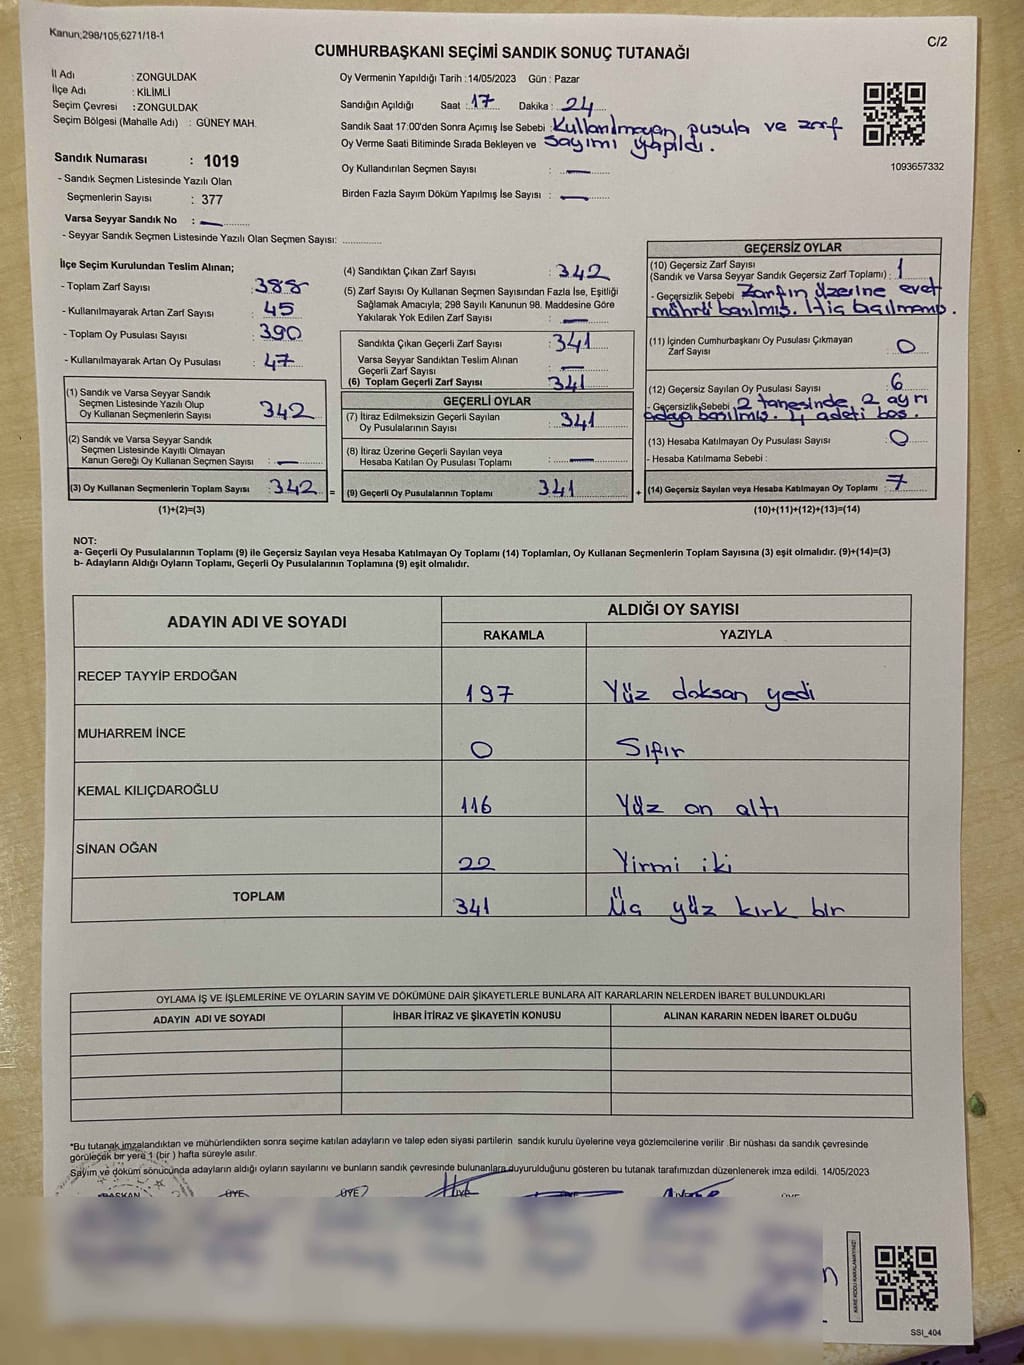 Kanun;298/105,6271/18-1
C/2
CUMHURBAŞKANI SEÇİMİ SANDIK SONUÇ TUTANAĞI
İl Adı : ZONGULDAK
İlçe Adı : KİLİMLİ
Seçim Çevresi : ZONGULDAK
Seçim Bölgesi (Mahalle Adı) : GÜNEY MAH.
Sandık Numarası : 1019
- Sandık Seçmen Listesinde Yazılı Olan
Seçmenlerin Sayısı : 377
Varsa Seyyar Sandık No : —
- Seyyar Sandık Seçmen Listesinde Yazılı Olan Seçmen Sayısı: ..............
Oy Vermenin Yapıldığı Tarih :14/05/2023 Gün : Pazar
Sandığın Açıldığı Saat : 17 Dakika : 24
Sandık Saat 17:00'den Sonra Açımış İse Sebebi : Kullanılmayan pusula ve zarf
Oy Verme Saati Bitiminde Sırada Bekleyen ve sayımı yapıldı.
Oy Kullandırılan Seçmen Sayısı : —
Birden Fazla Sayım Döküm Yapılmış İse Sayısı : —
1093657332
İlçe Seçim Kurulundan Teslim Alınan;
- Toplam Zarf Sayısı : 388
- Kullanılmayarak Artan Zarf Sayısı : 45
- Toplam Oy Pusulası Sayısı : 390
- Kullanılmayarak Artan Oy Pusulası : 47
(1) Sandık ve Varsa Seyyar Sandık
Seçmen Listesinde Yazılı Olup
Oy Kullanan Seçmenlerin Sayısı : 342
(2) Sandık ve Varsa Seyyar Sandık
Seçmen Listesinde Kayıtlı Olmayan
Kanun Gereği Oy Kullanan Seçmen Sayısı : —
(3) Oy Kullanan Seçmenlerin Toplam Sayısı : 342 =
(1)+(2)=(3)
(4) Sandıktan Çıkan Zarf Sayısı : 342
(5) Zarf Sayısı Oy Kullanan Seçmen Sayısından Fazla İse, Eşitliği
Sağlamak Amacıyla, 298 Sayılı Kanunun 98. Maddesine Göre
Yakılarak Yok Edilen Zarf Sayısı : —
Sandıkta Çıkan Geçerli Zarf Sayısı : 341
Varsa Seyyar Sandıktan Teslim Alınan
Geçerli Zarf Sayısı : —
(6) Toplam Geçerli Zarf Sayısı : 341
GEÇERLİ OYLAR
(7) İtiraz Edilmeksizin Geçerli Sayılan
Oy Pusulalarının Sayısı : 341
(8) İtiraz Üzerine Geçerli Sayılan veya
Hesaba Katılan Oy Pusulası Toplamı : —
(9) Geçerli Oy Pusulalarının Toplamı 341 +
GEÇERSİZ OYLAR
(10) Geçersiz Zarf Sayısı
(Sandık ve Varsa Seyyar Sandık Geçersiz Zarf Toplamı) : 1
- Geçersizlik Sebebi : Zarfın üzerine evet
mührü basılmış. Hiç açılmamış.
(11) İçinden Cumhurbaşkanı Oy Pusulası Çıkmayan
Zarf Sayısı : 0
(12) Geçersiz Sayılan Oy Pusulası Sayısı : 6
- Geçersizlik Sebebi : 2 tanesinde 2 ayrı
adaya basılmış. 4 adeti boş.
(13) Hesaba Katılmayan Oy Pusulası Sayısı : 0
- Hesaba Katılmama Sebebi :
(14) Geçersiz Sayılan veya Hesaba Katılmayan Oy Toplamı : 7
(10)+(11)+(12)+(13)=(14)
NOT:
a- Geçerli Oy Pusulalarının Toplamı (9) ile Geçersiz Sayılan veya Hesaba Katılmayan Oy Toplamı (14) Toplamları, Oy Kullanan Seçmenlerin Toplam Sayısına (3) eşit olmalıdır. (9)+(14)=(3)
b- Adayların Aldığı Oyların Toplamı, Geçerli Oy Pusulalarının Toplamına (9) eşit olmalıdır.
ADAYIN ADI VE SOYADI
ALDIĞI OY SAYISI
RAKAMLA YAZIYLA
RECEP TAYYİP ERDOĞAN 197 Yüz doksan yedi
MUHARREM İNCE 0 Sıfır
KEMAL KILIÇDAROĞLU 116 Yüz on altı
SİNAN OĞAN 22 Yirmi iki
TOPLAM 341 Üç yüz kırk bir
OYLAMA İŞ VE İŞLEMLERİNE VE OYLARIN SAYIM VE DÖKÜMÜNE DAİR ŞİKAYETLERLE BUNLARA AİT KARARLARIN NELERDEN İBARET BULUNDUKLARI
ADAYIN ADI VE SOYADI İHBAR İTİRAZ VE ŞİKAYETİN KONUSU ALINAN KARARIN NEDEN İBARET OLDUĞU
*Bu tutanak imzalandıktan ve mühürlendikten sonra seçime katılan adayların ve talep eden siyasi partilerin sandık kurulu üyelerine veya gözlemcilerine verilir .Bir nüshası da sandık çevresinde
görülecek bir yere 1 (bir ) hafta süreyle asılır.
Sayım ve döküm sonucunda adayların aldığı oyların sayılarını ve bunların sandık çevresinde bulunanlara duyurulduğunu gösteren bu tutanak tarafımızdan düzenlenerek imza edildi. 14/05/2023
BAŞKAN ÜYE ÜYE
SSI_404